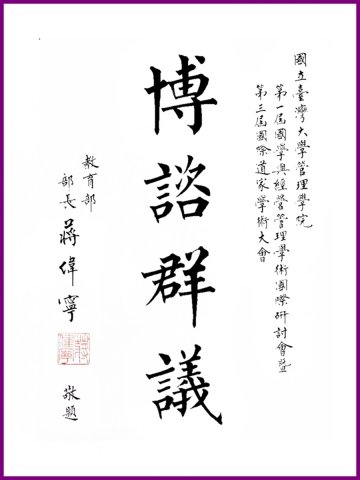 國立臺灣大學管理學院
第一屆國學與經營管理學術國際研討會暨
第三屆國際道家學術大會
博諮群議
教育部
部長蔣偉寧
敬題